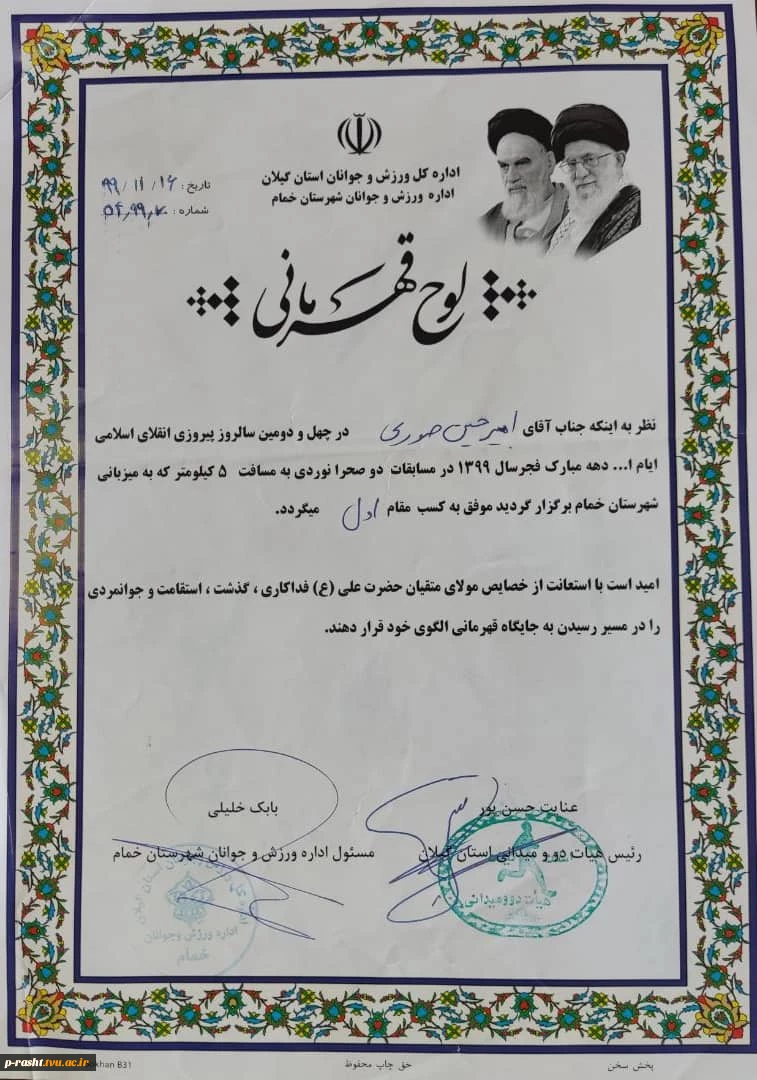 اداره کل ورزش و جوانان استان گیلان
اداره ورزش و جوانان شهرستان خمام
تاریخ : ۹۹/۱۱/۱۶
شماره :
لوح قهرمانی
نظر به اینکه جناب آقای امیرحسین صوری در چهل و دومین سالروز پیروزی انقلای اسلامی
ایام ا... دهه مبارک فجرسال ۱۳۹۹ در مسابقات دو صحرا نوردی به مسافت ۵ کیلومتر که به میزبانی
شهرستان خمام برگزار گردید موفق به کسب مقام اول میگردد.
امید است با استعانت از خصایص مولای متقیان حضرت علی (ع) فداکاری ، گذشت ، استقامت و جوانمردی
را در مسیر رسیدن به جایگاه قهرمانی الگوی خود قرار دهند.
عنایت حسن پور
رئیس هیات دو و میدانی استان گیلان
بابک خلیلی
مسئول اداره ورزش و جوانان شهرستان خمام
هیات دوومیدانی
اداره ورزش وجوانان
خمام
پخش سخن
حق چاپ محفوظ
khan B31
p-rasht.tvu.ac.ir